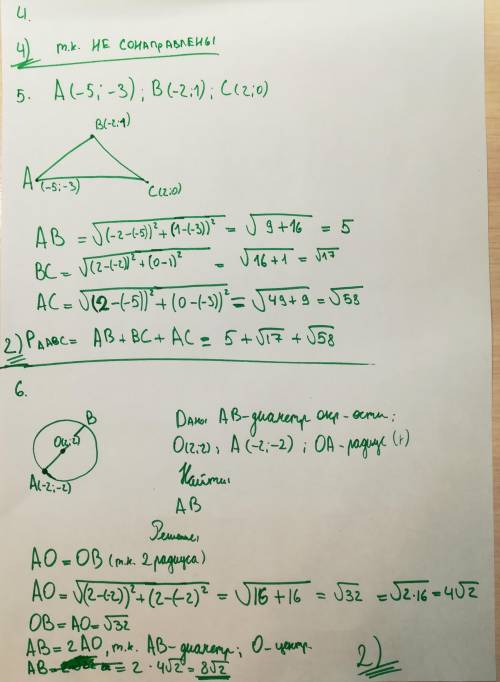 4.
4) т.к. НЕ СОНАПРАВЛЕНЫ
5. A(-5;-3); B(-2;1); C(2;0)
B(-2;1)
A (-5;-3)
C(2;0)
AB = √((-2-(-5))² + (1-(-3))²) = √(9+16) = 5
BC = √((2-(-2))² + (0-1)²) = √(16+1) = √17
AC = √((2-(-5))² + (0-(-3))²) = √(49+9) = √58
2) P△ABC = AB + BC + AC = 5 + √17 + √58
6.
B
O(2;2)
A(-2;-2)
Дано: AB-диаметр окр-ости;
O(2;2), A(-2;-2); OA-радиус (r)
Найти:
AB
Решение:
AO = OB (т.к. 2 радиуса)
AO = √((2-(-2))² + (2-(-2)²) = √(16+16) = √32 = √(2·16) = 4√2
OB = AO = √32
AB = 2AO, т.к. AB-диаметр; O-центр
AB = 2 · 4√2 = 8√2
2)